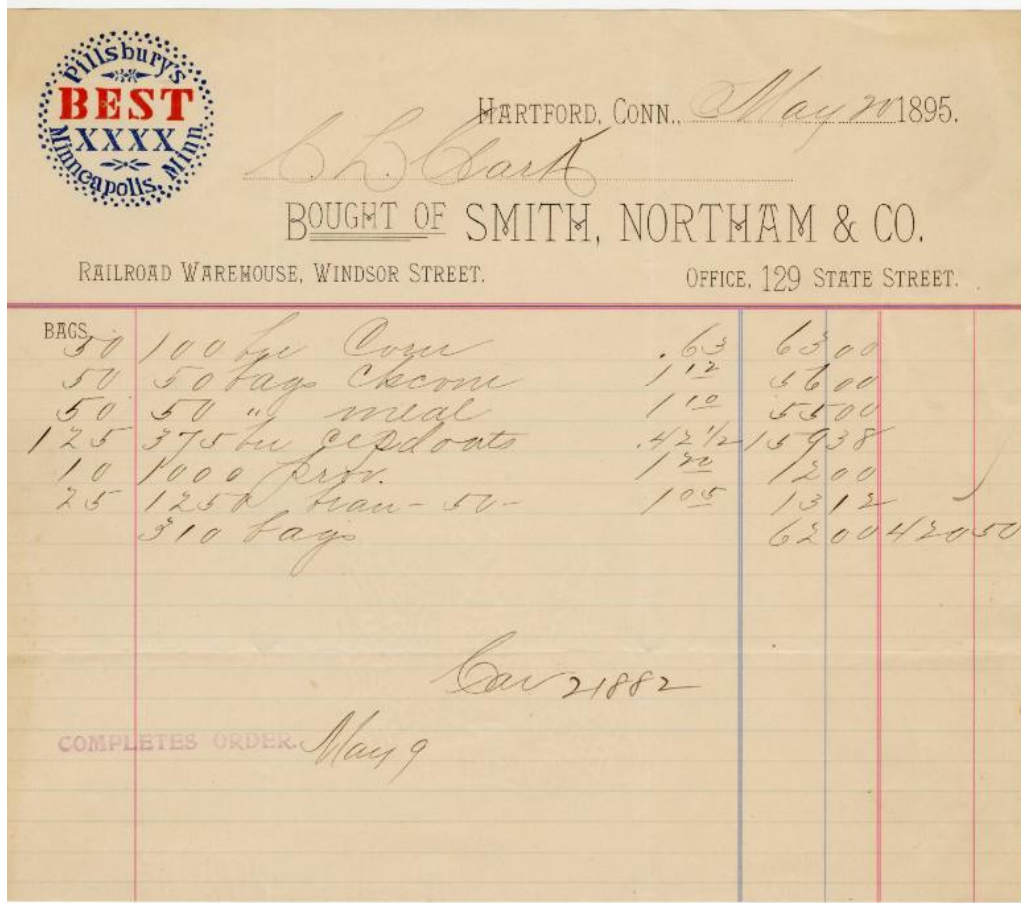 Pillsbury's
BEST
XXXX
Minneapolis, Minn.
HARTFORD, CONN., May 20 1895.
C. L. Clark
BOUGHT OF SMITH, NORTHAM & CO.
RAILROAD WAREHOUSE, WINDSOR STREET. OFFICE, 129 STATE STREET.
BAGS
50 100 bu Corn .63 63 00
50 50 bags 1 12 56 00
50 50 " meal 1 10 55 00
125 375 bu .42 1/2 159 38
10 1000 prov. 1 20 12 00
25 1250 bran - 50 - 1 05 13 12
310 bags 62 00 420 50
Car 21882
COMPLETES ORDER. May 9